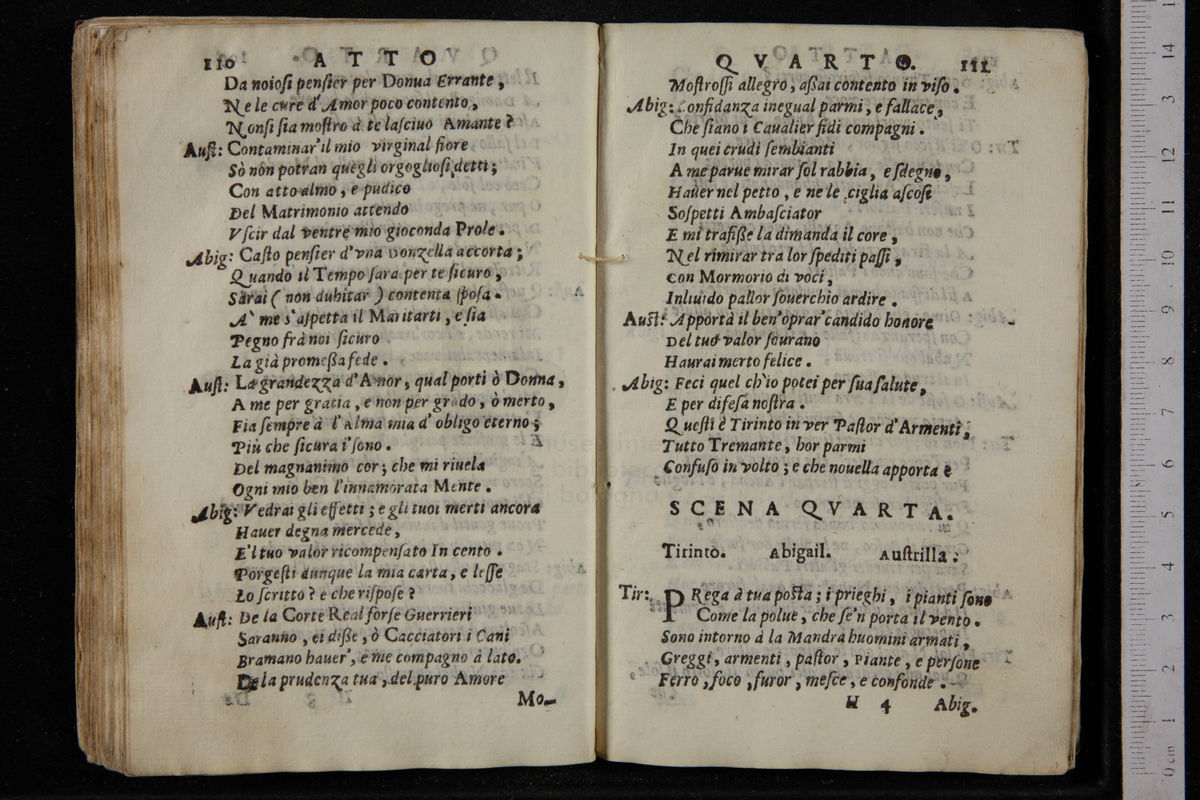 110 ATTO
Da noiosi pensier per Donua Errante,
Ne le cure d'Amor poco contento,
Nonsi sia mostro à te lasciuo Amante?
Aust: Contaminar'il mio virginal fiore
Sò non potran quegli orgogliosi detti;
Con atto almo, e pudico
Del Matrimonio attendo
Vscir dal ventre mio gioconda Prole.
Abig: Casto pensier d'vna Donzella accorta;
Quando il Tempo sara per te sicuro,
Sarai ( non dubitar ) contenta sposa.
A' me s'aspetta il Maritarti, e sia
Pegno frà noi sicuro
La già promessa fede.
Aust: La grandezza d'Amor, qual porti ò Donna,
A me per gratia, e non per grado, ò merto,
Fia sempre à l'Alma mia d'obligo eterno;
Più che sicura i'sono.
Del magnanimo cor; che mi riuela
Ogni mio ben l'innamorata Mente.
Abig: Vedrai gli effetti; e gli tuoi merti ancora
Hauer degna mercede,
E'l tuo valor ricompensato In cento.
Porgesti dunque la mia carta, e lesse
Lo scritto? e che rispose?
Aust: De la Corte Real forse Guerrieri
Saranno, ei disse, ò Cacciatori i Cani
Bramano hauer', e me compagno à lato.
De la prudenza tua, del puro Amore
Mo-
QVARTO. 111
Mostrossi allegro, assai contento in viso.
Abig: Confidanza inegual parmi, e fallace,
Che siano i Caualier fidi compagni.
In quei crudi sembianti
A me parue mirar sol rabbia, e sdegno,
Hauer nel petto, e ne le ciglia ascosi
Sospetti Ambasciator
E mi trafisse la dimanda il core,
Nel rimirar tra lor spediti passi,
Con Mormorio di voci,
Inliuido pallor souerchio ardire.
Aust: Apportà il ben'oprar' candido honore
Del tuo valor sourano
Haurai merto felice.
Abig: Feci quel ch'io potei per sua salute,
E per difesa nostra.
Questi è Tirinto in ver Pastor d'Armenti,
Tutto Tremante, hor parmi
Confuso in volto; e che nouella apporta è
SCENA QVARTA.
Tirinto. Abigail. Austrilla;
Tir: PRega à tua posta; i prieghi, i pianti sono
Come la polue, che se'n porta il vento.
Sono intorno à la Mandra huomini armati,
Greggi, armenti, pastor, Piante, e persone
Ferro, foco, furor, mesce, e confonde.
H 4 Abig.